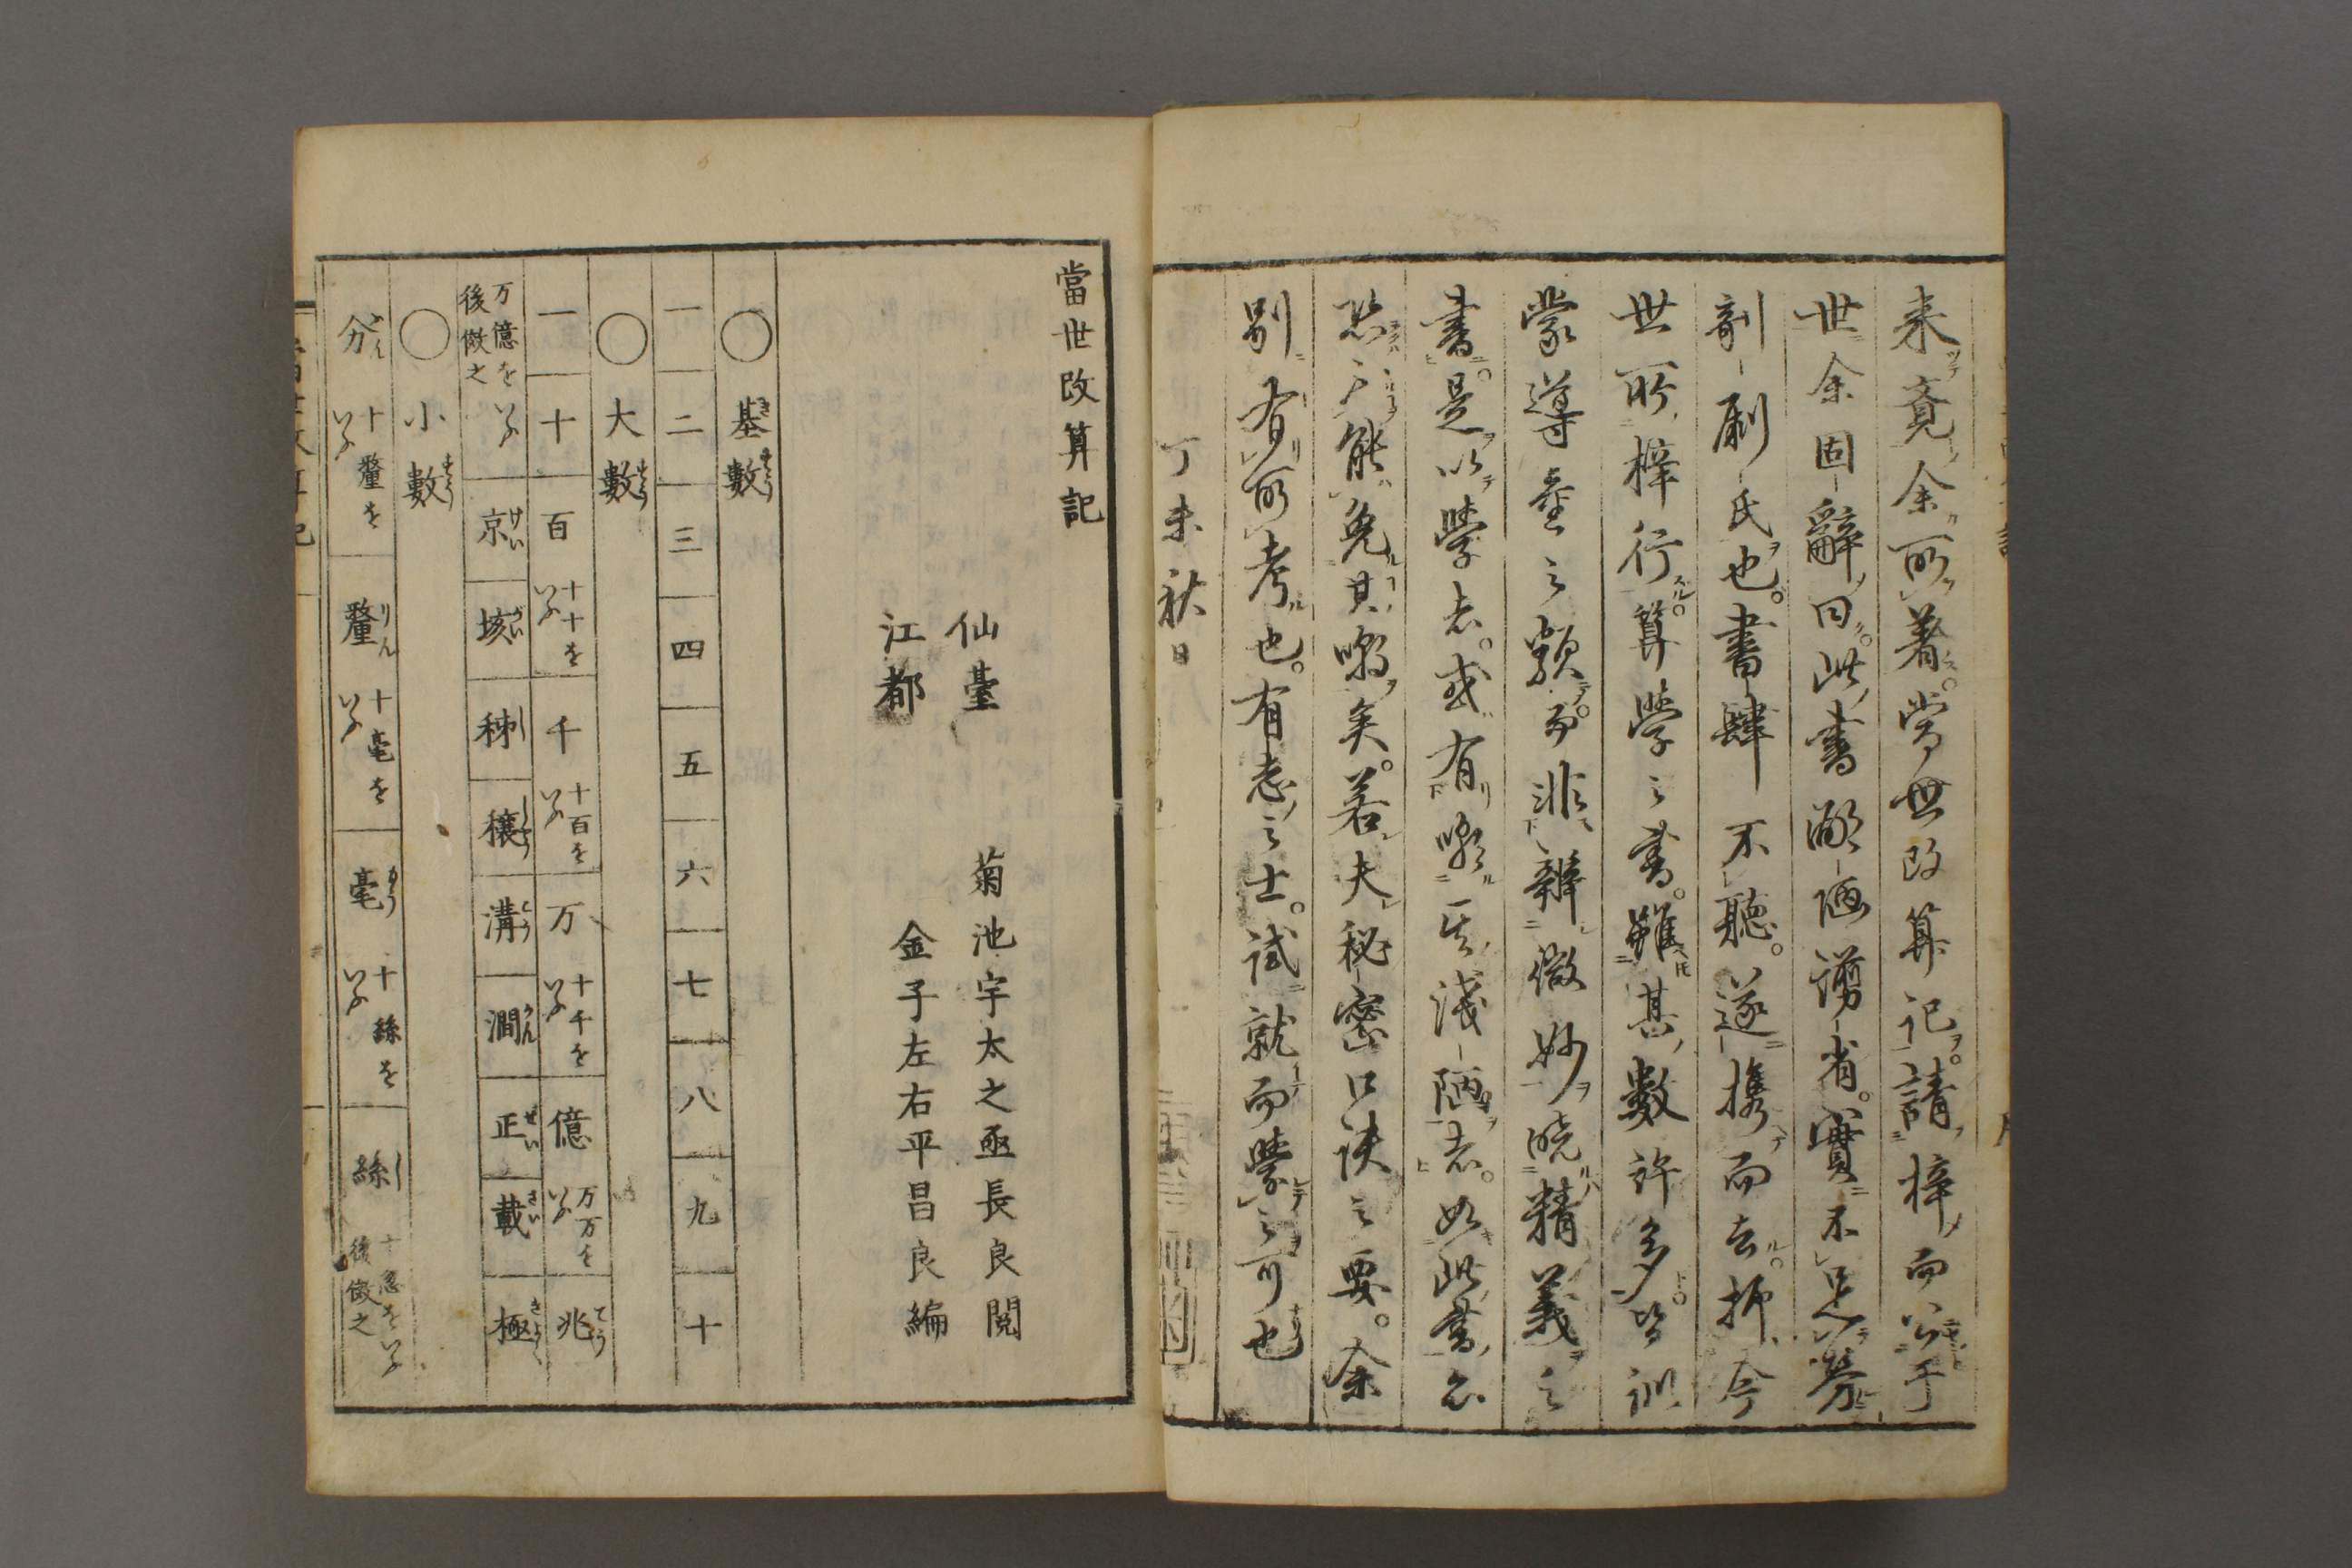 来竟余所著當世改算記請梓而公于
世余固辭曰此書鄙陋謭省實不足労
剞劂氏也書肆不聴遂携而去抑今
世所梓行算學之書雖其數許多皆訓
蒙導童之類而非辨微妙暁精義之
書是以學者或有嘲其淺陋者如此書亦
恐不能免其嘲矣若夫秘密口訣之要余
別有所考也有志之士試就而學之可也
丁未秋日
當世改算記
仙臺 菊池宇太之亟長良閲
江都 金子左右平昌良編
○基數
一 二 三 四 五 六 七 八 九 十
○大數
一 十 百 十十をいふ 千 十百をいふ 万 十千をいふ 億 万万をいふ 兆
万億をいふ後傚之 京 垓 秭 穣 溝 澗 正 載 極
○小數
分 十釐をいふ 釐 十毫をいふ 毫 十絲をいふ 絲 十忽をいふ後傚之